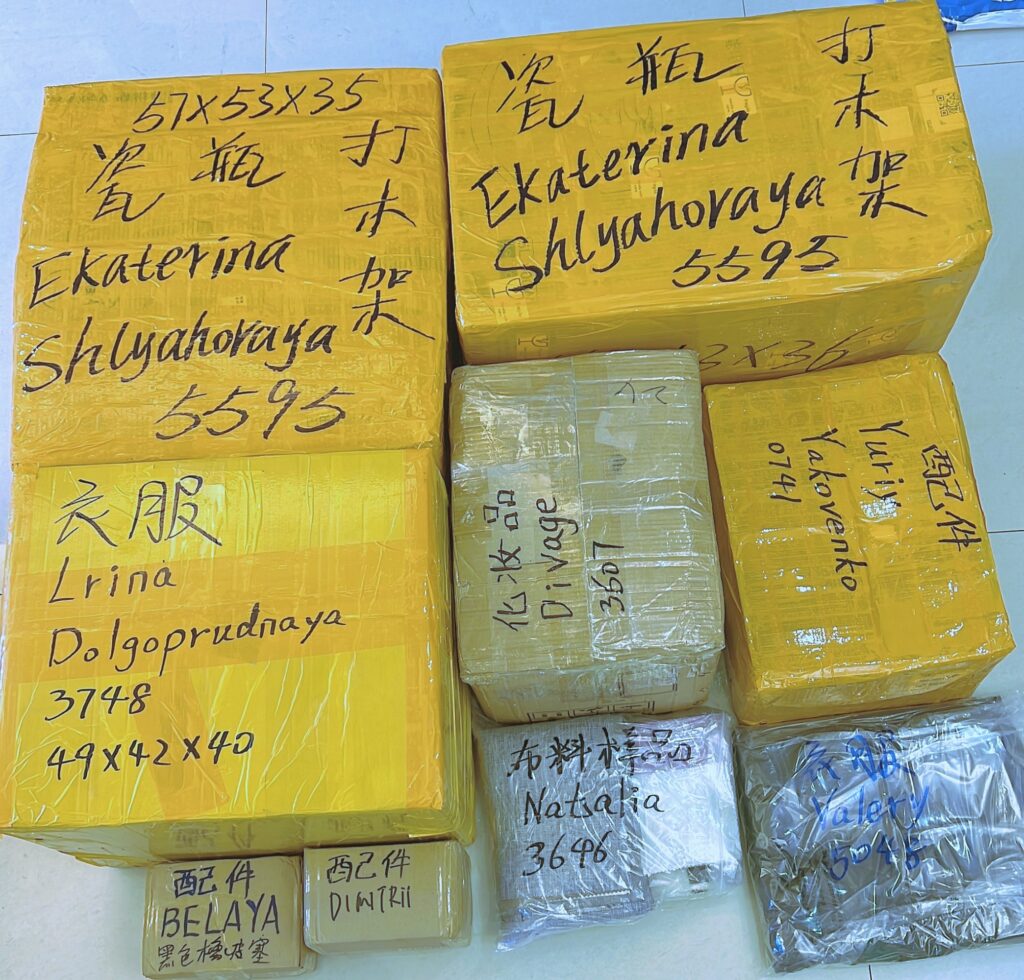 57X53X35
瓷瓶 打木架
Ekaterina
Shlyahovaya
5595
瓷瓶 打木架
Ekaterina
Shlyahovaya
5595
3X36
衣服
Lrina
Dolgoprudnaya
3748
49X42X40
化妆品
Divage
3607
配件
Yuriy
Yakovenko
0741
布料样品
Natsalia
3646
衣服
Valery
5045
配件
BELAYA
黑色橡皮塞
配件
DIMTRII